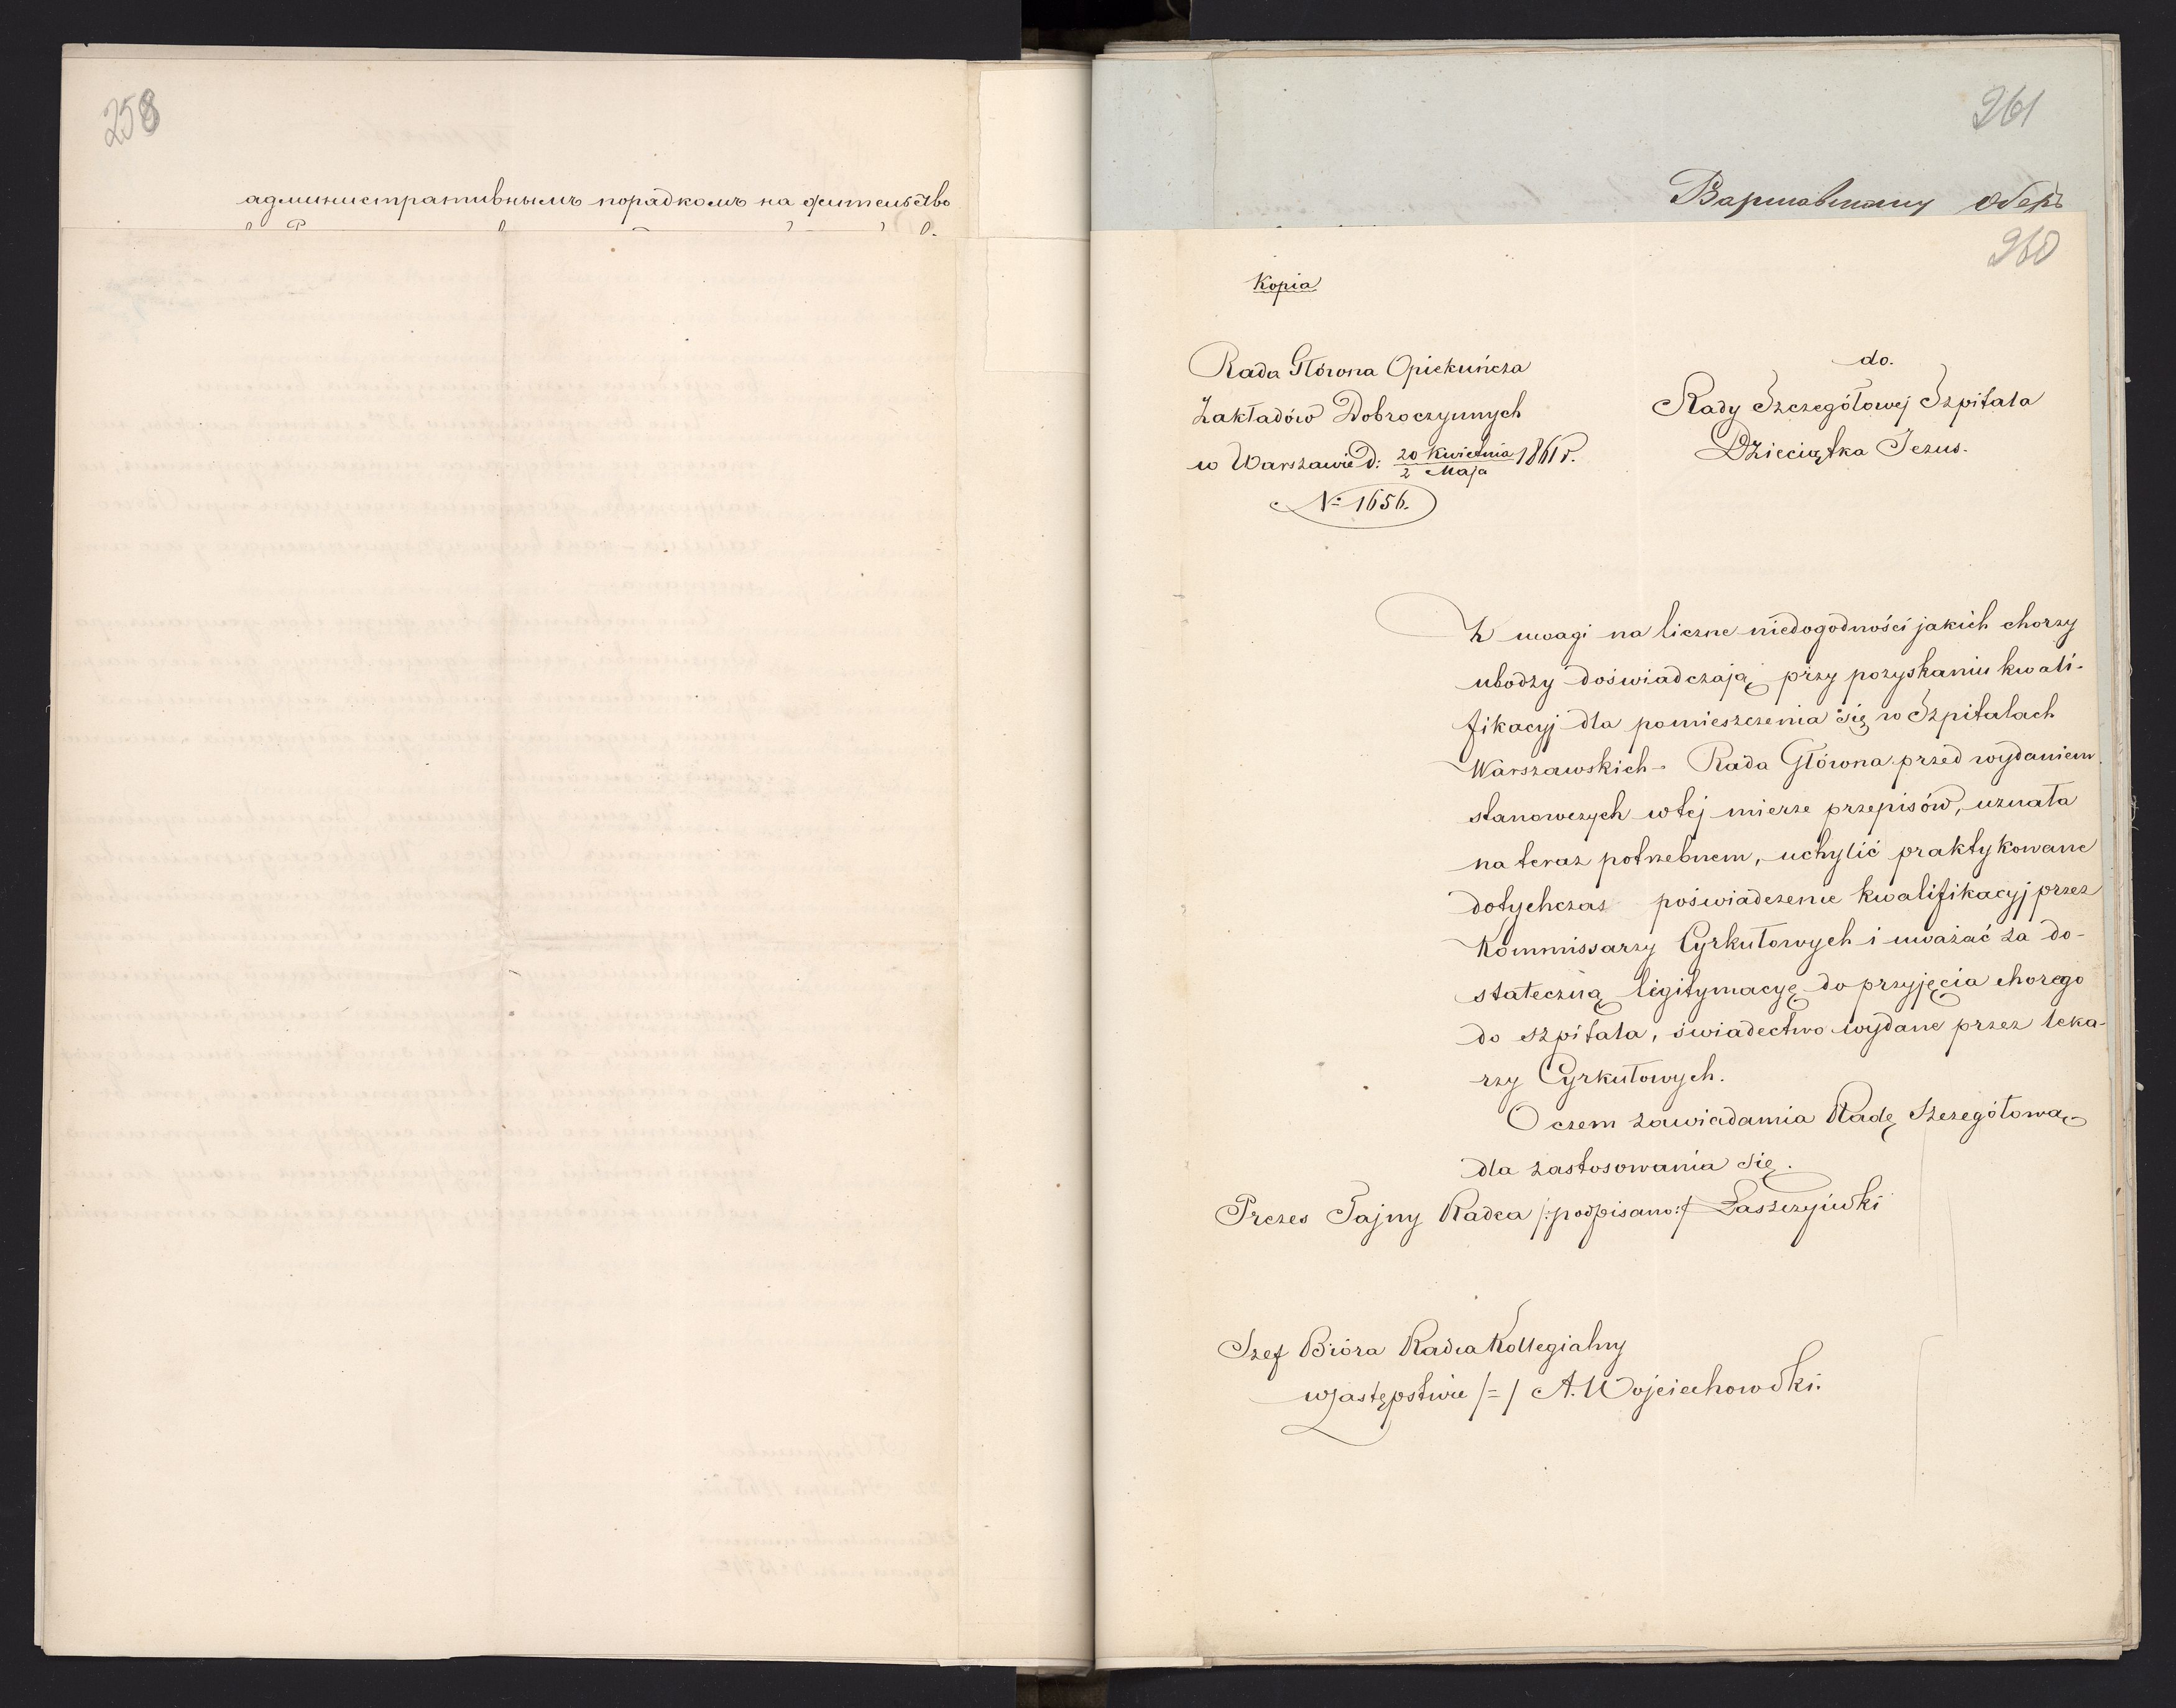 258
административнымъ порядкомъ на жительство
261
Варшавскому Оберъ
260
Kopia
Rada Główna Opiekuńcza
Zakładów Dobroczynnych
w Warszawie D: 20 Kwietnia / 2 Maja 1861 r.
№ 1656.
do.
Rady Szczegółowej Szpitala
Dzieciątka Jezus.
Z uwagi na liczne niedogodności jakich chorzy
ubodzy doświadczają przy pozyskaniu kwali-
fikacyj dla pomieszczenia się w Szpitalach
Warszawskich - Rada Główna przed wydaniem
stanowczych w tej mierze przepisów, uznała
na teraz potrzebnem, uchylić praktykowane
dotychczas poświadczenie kwalifikacyj przez
Kommissarzy Cyrkułowych i uważać za do-
stateczną legitymacyę do przyjęcia chorego
do szpitala, świadectwo wydane przez leka-
rzy Cyrkułowych.
O czem zawiadamia Radę Szczegółową
dla zastosowania się.
Prezes Tajny Radca /:podpisano:/ Łaszczyński
Szef Bióra Radca Kollegialny
w zastępstwie /=/ A. Wojciechowski.